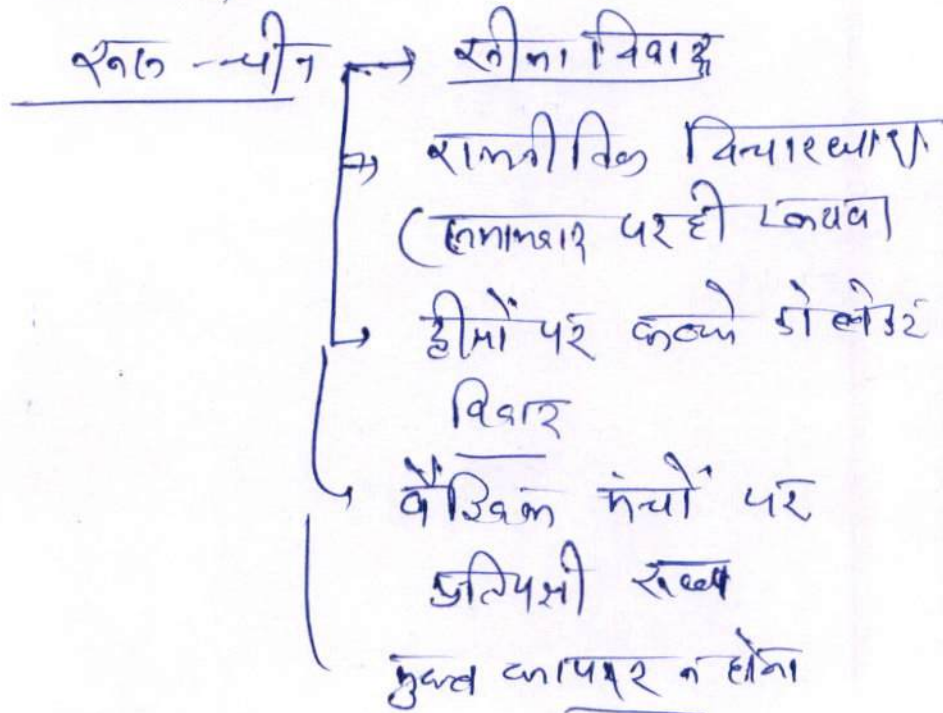 रूस - चीन → सीमा विवाद
→ राजनीतिक विचारधारा
( पर ही
→ द्वीपों पर कब्जे को लेकर
विवाद
→ वैश्विक मंचों पर
प्रतिपक्षी
मुक्त व्यापार न होना